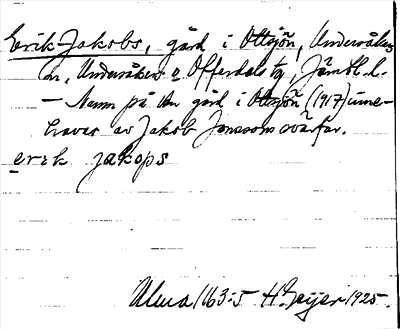 Erik-Jakobs, gård i Ottsjön, Undersåkers
sn, Undersåkers o Offerdals tg, Jämtl. l.
– Namn på den gård i Ottsjön (1917) inne-
havas av Jakob Jonssons svärfar.
erik jakops
Ulma 1163:5 H. Geijer 1925.